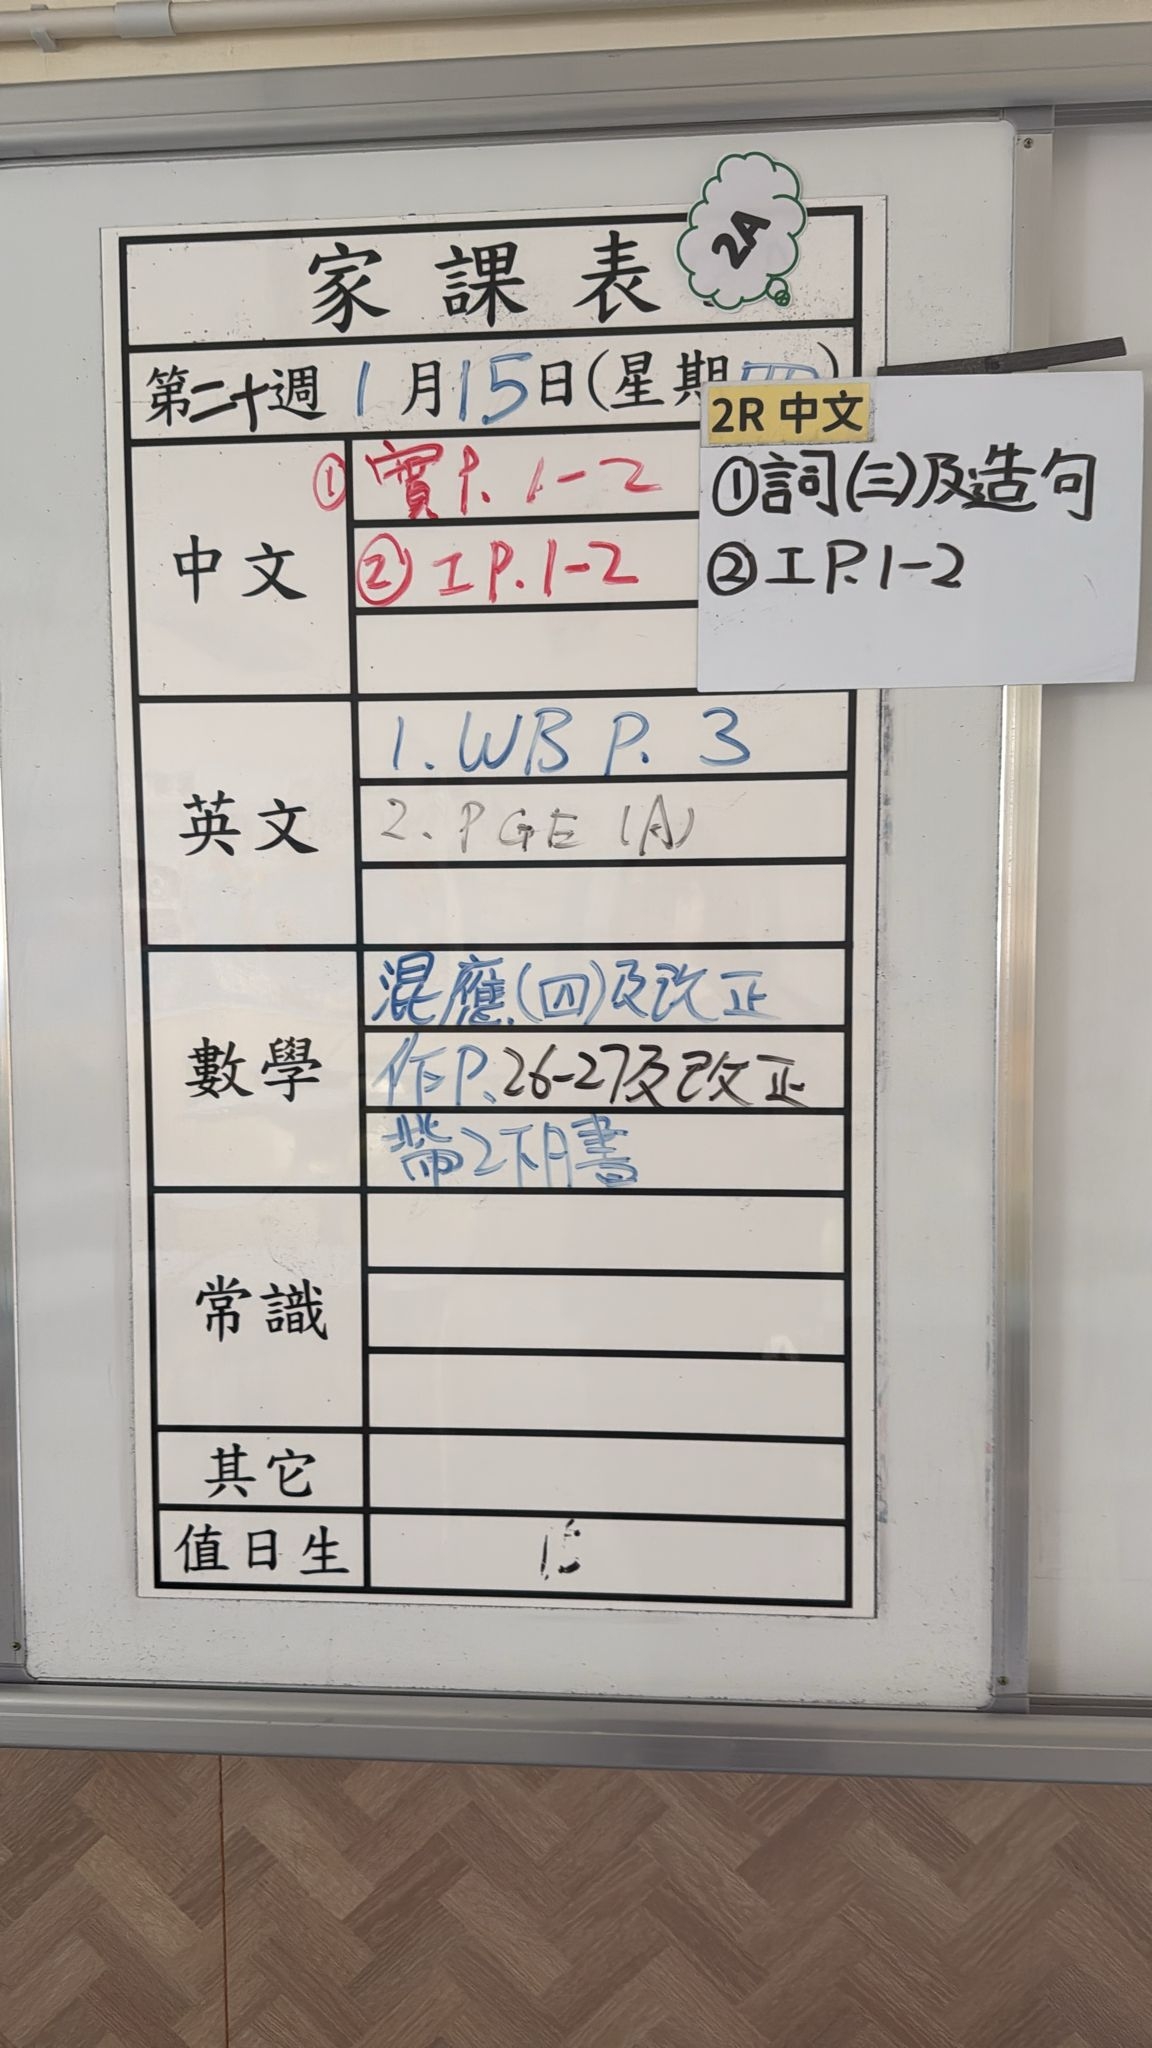 家課表
2A
第二十週 1月15日(星期四)
中文
① 實P. 1-2
② 工P. 1-2
2R 中文
①詞(三)及造句
②工P. 1-2
英文
1. WB P. 3
2. PGE (A)
數學
混應(四)及改正
作P. 26-27及改正
帶2下A書
常識
其它
值日生